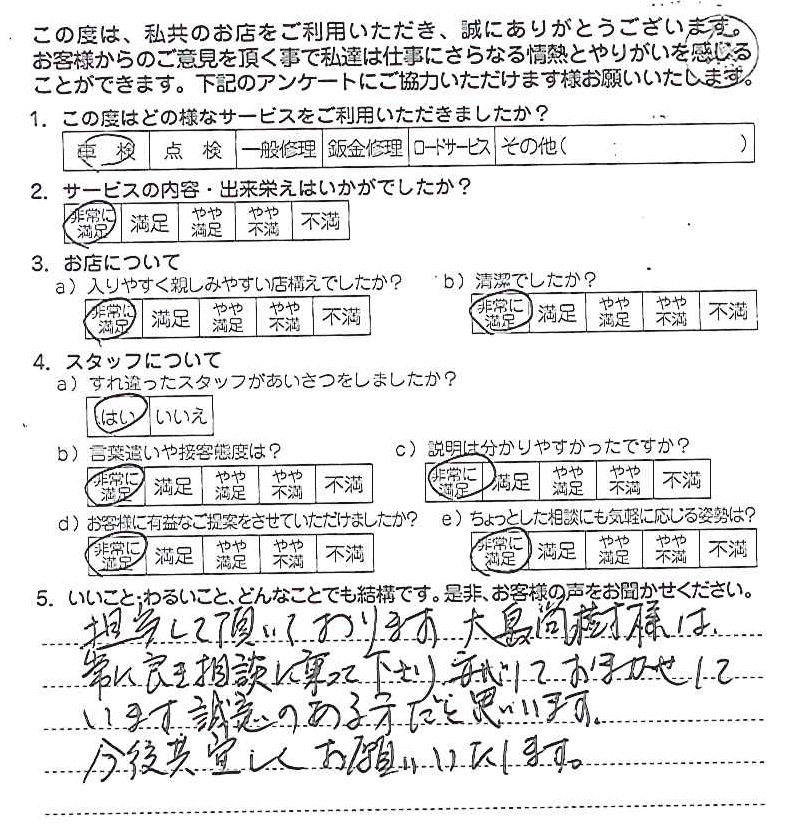 この度は、私共のお店をご利用いただき、誠にありがとうございます。
お客様からのご意見を頂く事で私達は仕事にさらなる情熱とやりがいを感じる
ことができます。下記のアンケートにご協力いただけます様お願いいたします。
1. この度はどの様なサービスをご利用いただきましたか?
車 検 点 検 一般修理 鈑金修理 ロードサービス その他( )
2. サービスの内容・出来栄えはいかがでしたか?
非常に満足 満足 やや満足 やや不満 不満
3. お店について
a) 入りやすく親しみやすい店構えでしたか? b) 清潔でしたか?
非常に満足 満足 やや満足 やや不満 不満 非常に満足 満足 やや満足 やや不満 不満
4. スタッフについて
a) すれ違ったスタッフがあいさつをしましたか?
はい いいえ
b) 言葉遣いや接客態度は? c) 説明は分かりやすかったですか?
非常に満足 満足 やや満足 やや不満 不満 非常に満足 満足 やや満足 やや不満 不満
d) お客様に有益なご提案をさせていただけましたか? e) ちょっとした相談にも気軽に応じる姿勢は?
非常に満足 満足 やや満足 やや不満 不満 非常に満足 満足 やや満足 やや不満 不満
5. いいこと、わるいこと、どんなことでも結構です。是非、お客様の声をお聞かせください。
担当して頂いております大島尚樹様は、
常に良き相談に乗って下さり、安心しておまかせして
います。誠意のある方だと思います。
今後共宜しくお願いいたします。